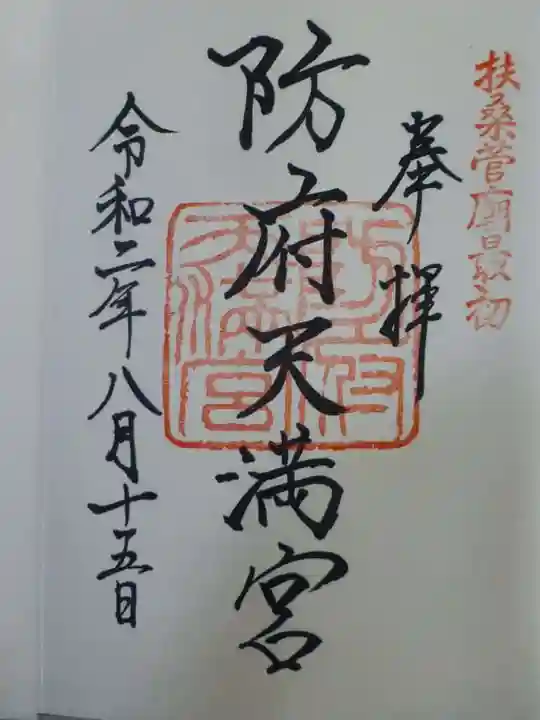 扶桑菅廟最初
奉拝
防府天満宮
令和二年八月十五日